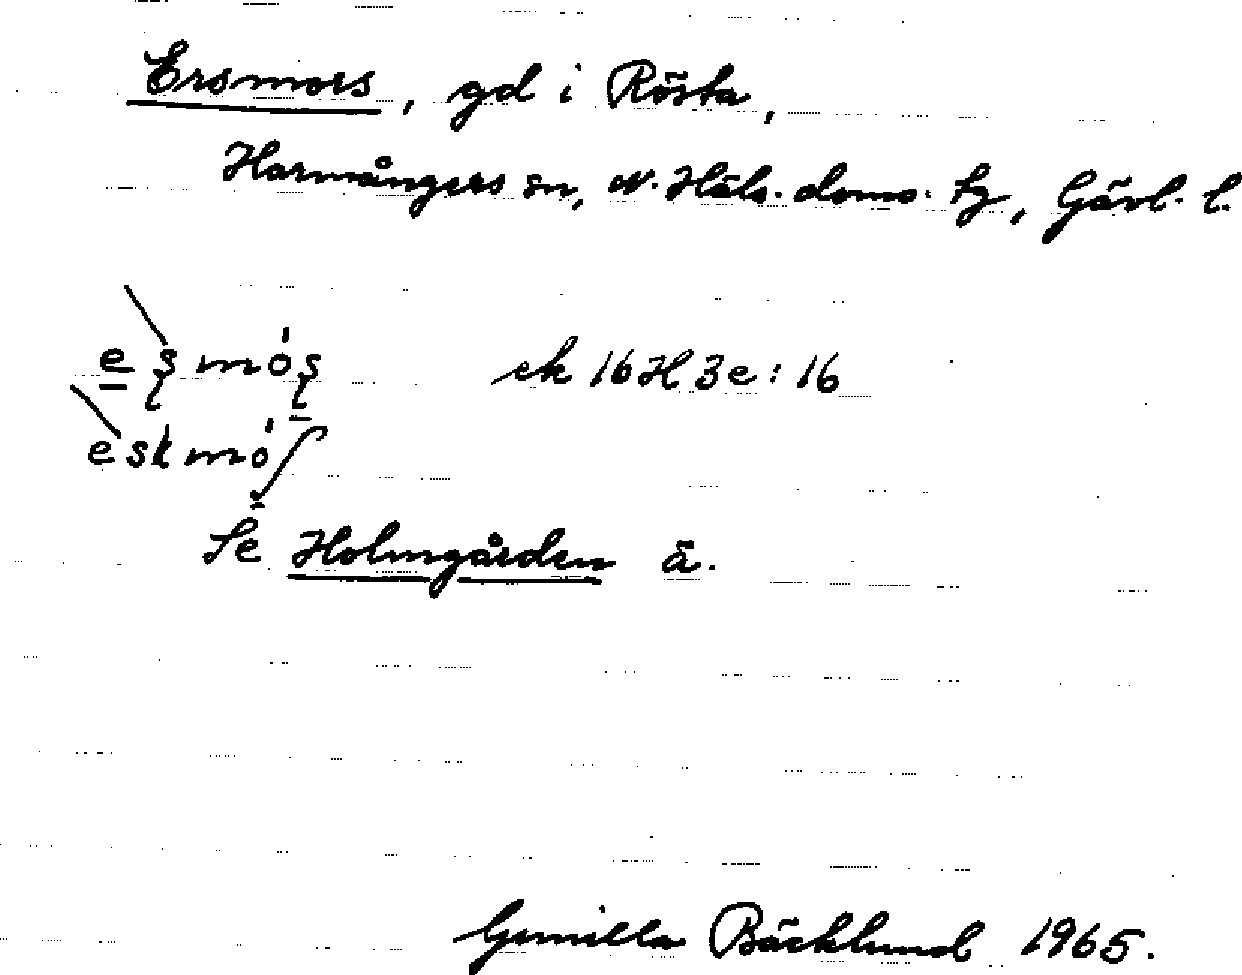 Ersmors, gd i Rösta,
Harmångers sn, N. Häls. doms. tg, Gävl. l.
ek 16H3e:16
Se Holmgården ä.
Gunilla Bäcklund 1965.